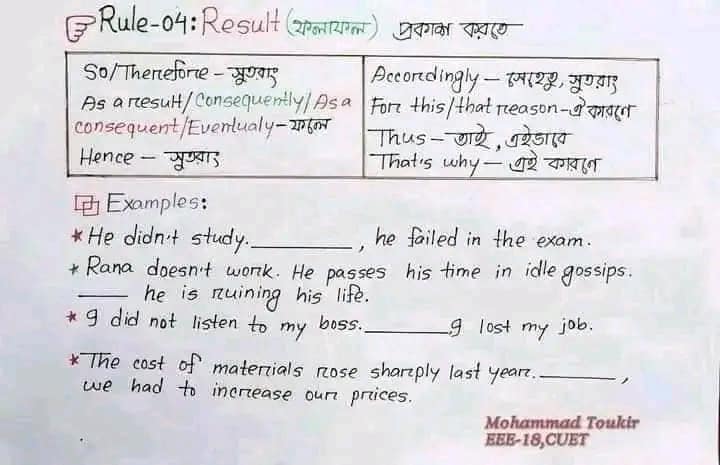 Rule-04: Result (ফলাফল) প্রকাশ করতে
So/Therefore - সুতরাং
As a result/Consequently/As a
consequent/Eventualy - ফলে
Hence - সুতরাং
Accordingly - সেহেতু, সুতরাং
For this/that reason - ঐ কারণে
Thus - তাই, এইভাবে
That's why - এই কারণে
Examples:
* He didn't study. ________, he failed in the exam.
* Rana doesn't work. He passes his time in idle gossips.
____ he is ruining his life.
* I did not listen to my boss. ________ I lost my job.
* The cost of materials rose sharply last year. ________,
we had to increase our prices.
Mohammad Toukir
EEE-18,CUET